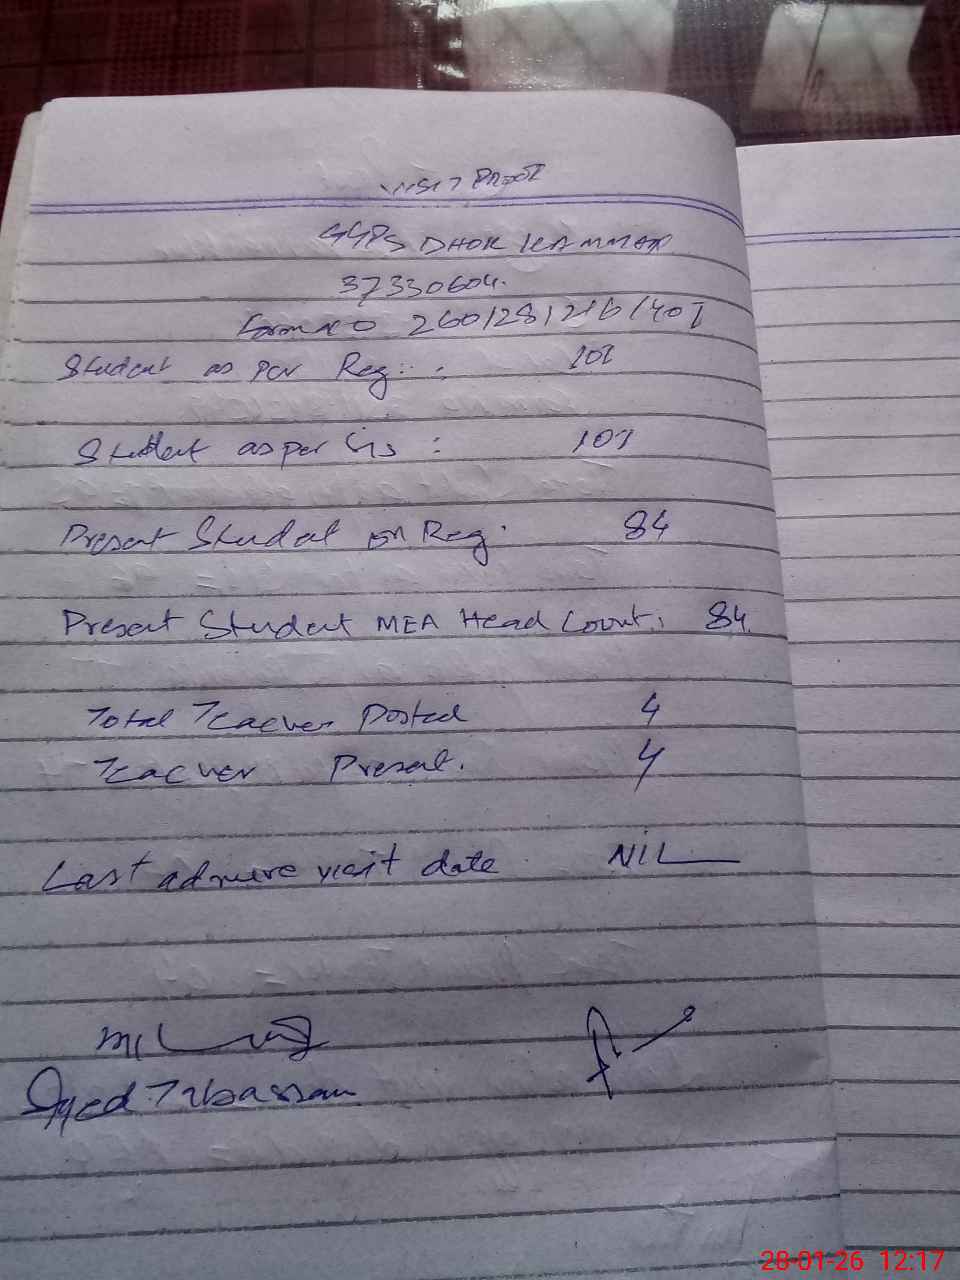 Visit Proof
GGPS DHOK KAMMAR
37330604.
Form NO 26012812161407
Student as per Reg : 101
Student as per Sis : 101
Present Student on Reg. 84
Present Student MEA Head Count. 84
Total Teacher Posted 4
Teacher Present. 4
Last admire visit date NIL
Syed Tabassam
28-01-26 12:17